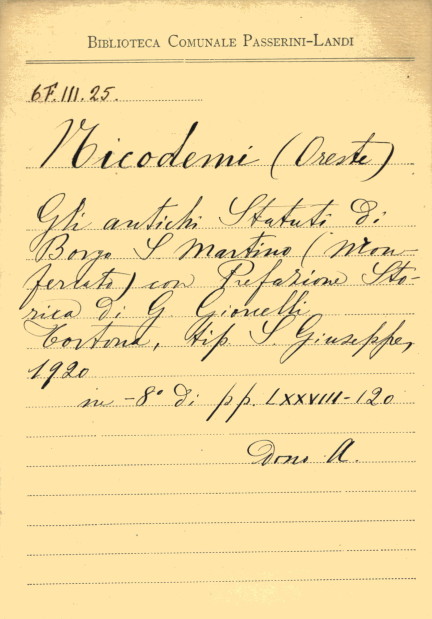 BIBLIOTECA COMUNALE PASSERINI-LANDI
6F.III.25.
Nicodemi (Oreste)
Gli antichi Statuti di
Borgo S. Martino (Mon-
ferrato) con Prefazione Sto-
rica di G. Giorcelli
Tortona, tip. S. Giuseppe,
1920
in -8° di pp. LXXVIII-120
Dono A.